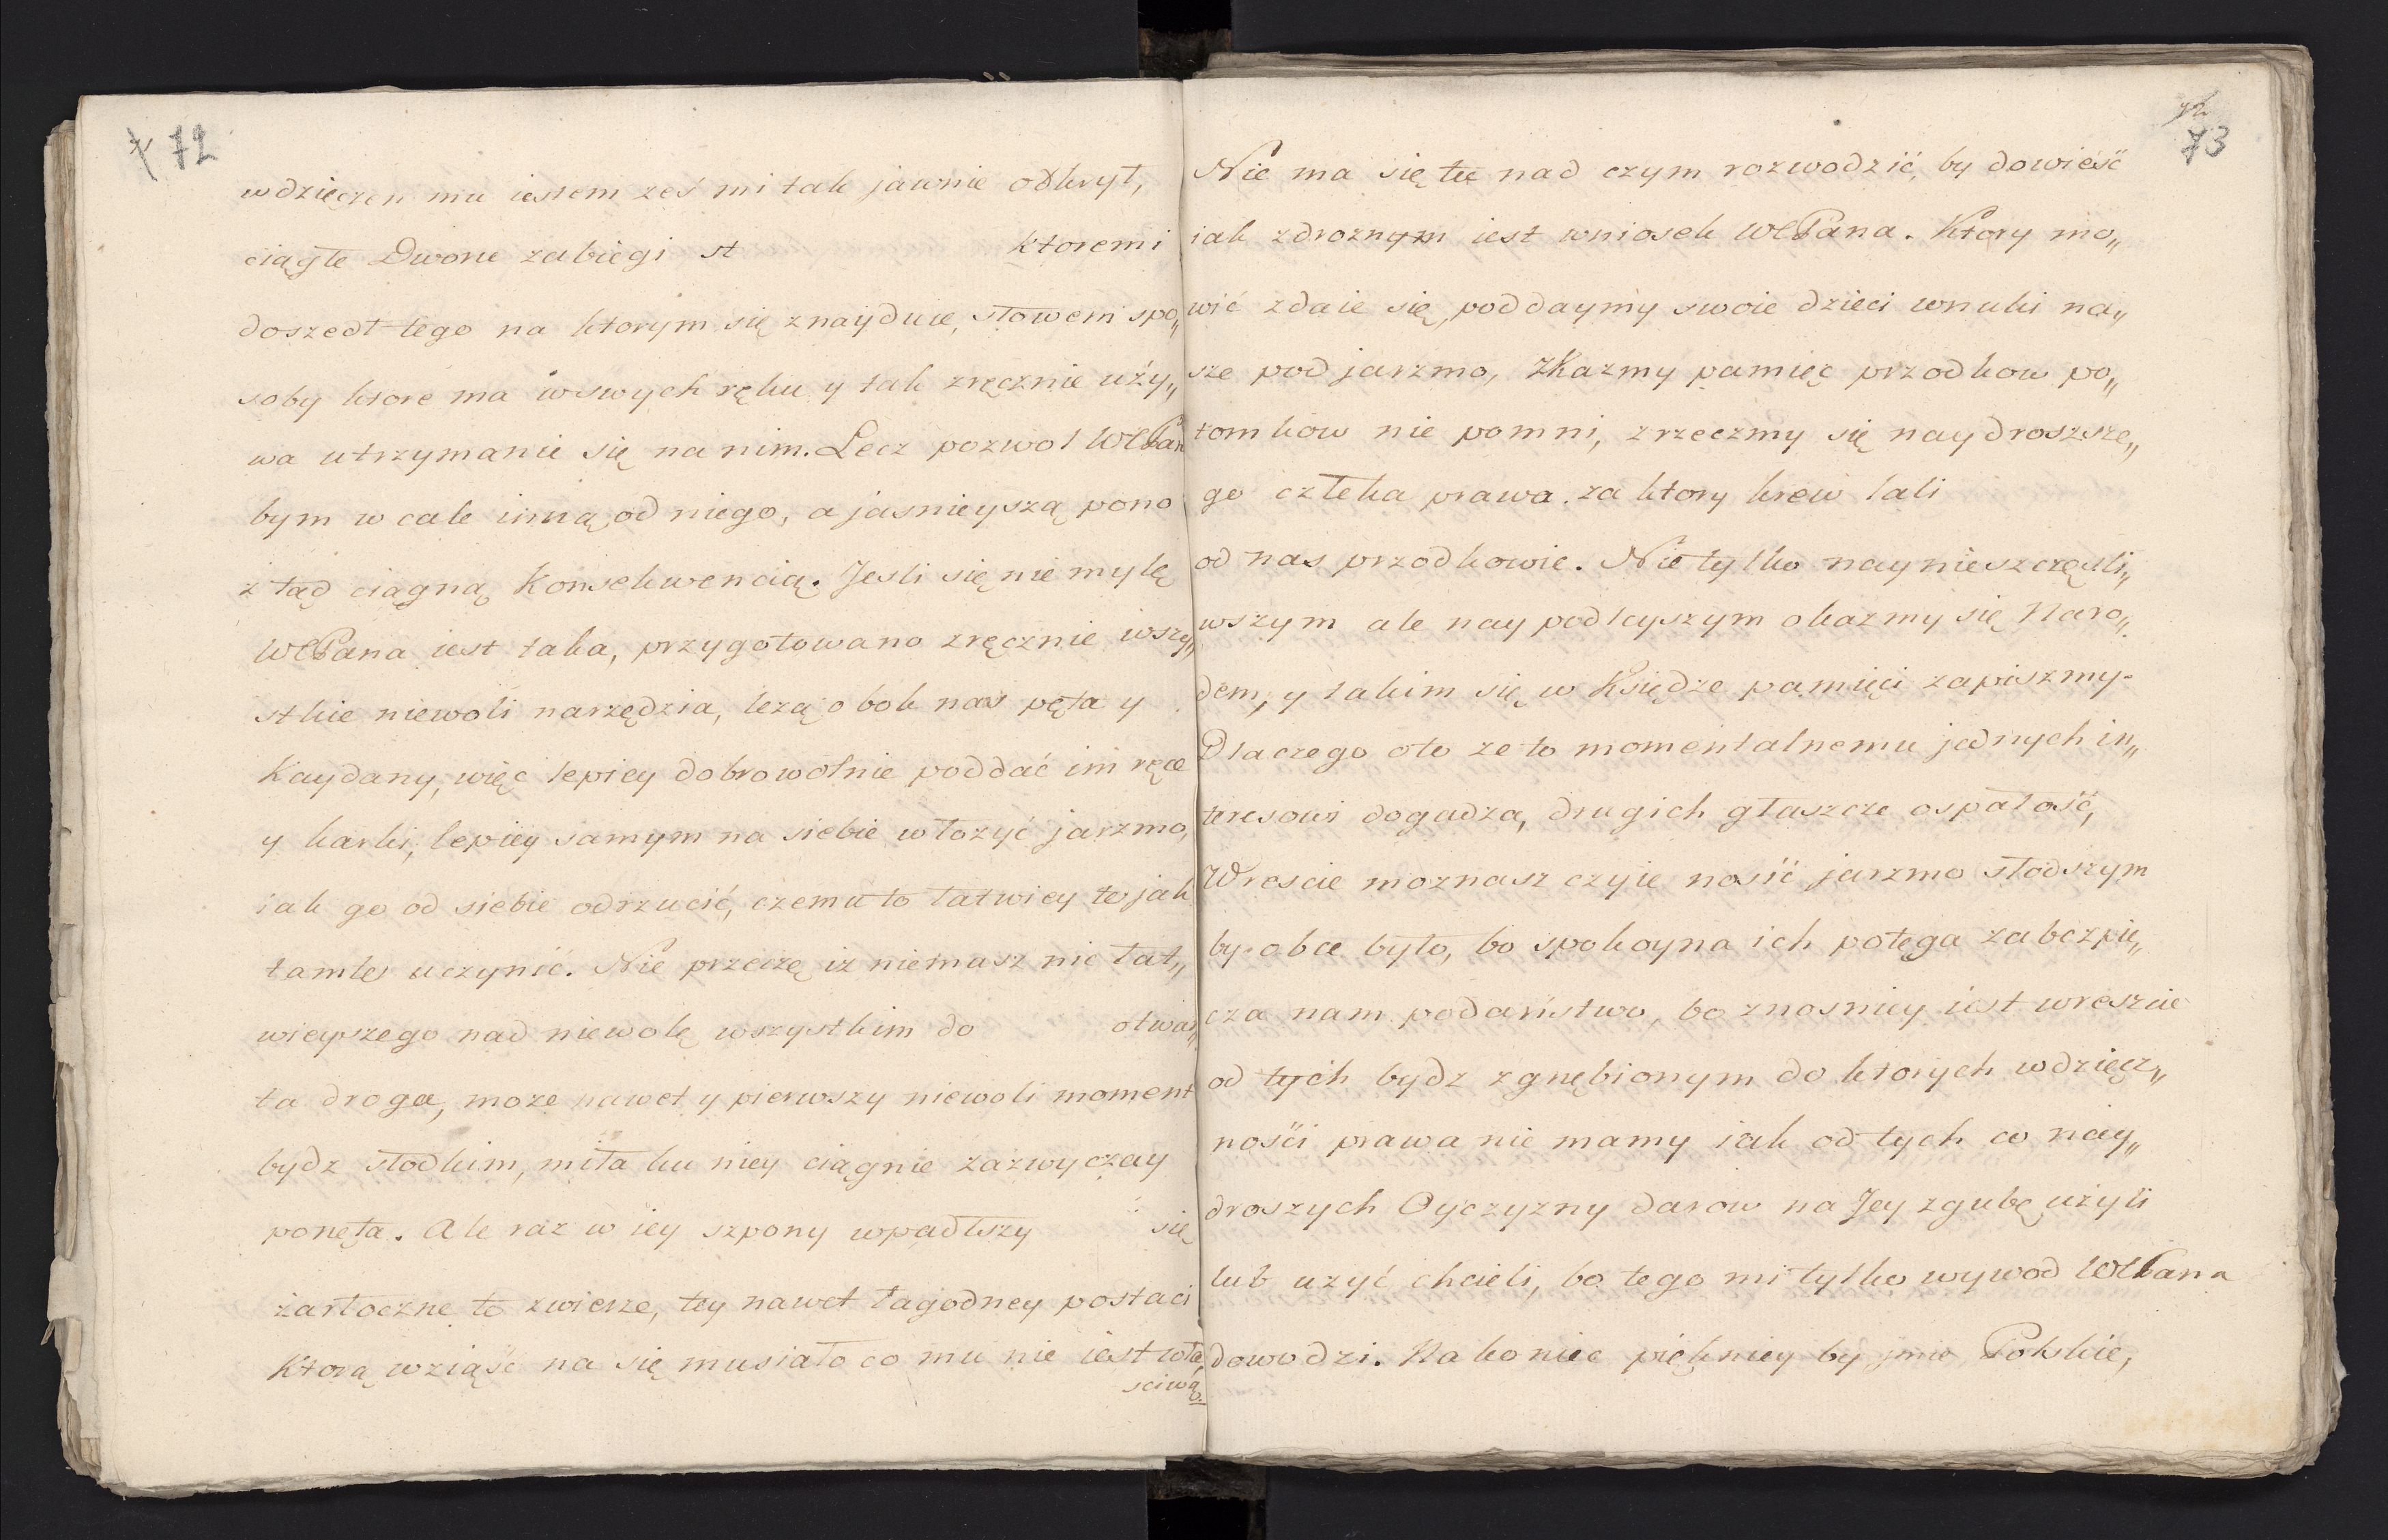 72
wdzięczen mu iestem ześ mi tak jawnie odkrył,
ciągłe Dworu zabiegi st ktoremi
doszedł tego na ktorym się znayduie, słowem spo„
soby ktore ma w swych ręku y tak zręcznie uży„
wa utrzymanie się na nim. Lecz pozwol WCPan
bym w cale inną od niego, a jasnieyszą pono
z tąd ciągną Konsekwencią. Jesli się nie mylę
WCPana iest taka, przygotowano zręcznie wszy„
stkie niewoli narzędzia, lezą obok nas pęta y
Kaydany, więc lepiey dobrowolnie poddać im ręce
y karki, lepiey samym na siebie włozyć jarzmo,
iak go od siebie odrzucić, czemu to łatwiey to jak
tamto uczynić. Nie przeczę iz niemasz nic łat„
wieyszego nad niewolę wszystkim do otwar„
ta droga, moze nawet y pierwszy niewoli moment
bydz słodkim, miła ku niey ciągnie zazwyczay
ponęta. Ale raz w iey szpony wpadłszy się
żartoczne to zwierze, tey nawet łagodney postaci
Ktorą wziąść na się musiało co mu nie iest wła„
sciwą.
72
73
Nie ma się tu nad czym rozwodzić, by dowieść
iak zdroznym iest wniosek WCPana. Ktory mo„
wić zdaie się, poddaymy swoie dzieci wnuki na„
sze pod jarzmo, Zkazmy pamięc przodkow po„
tomkow nie pomni, zrzeczmy się naydroszsze„
go człeka prawa. za ktory krew lali
od nas przodkowie. Nie tylko naynieszczęsli„
wszym ale nay podleyszym okazmy się Naro„
dem, y takim się w Księdze pamięci zapiszmy.
Dlaczego oto ze to momentalnemu jednych in„
teresowi dogadza, drugich głaszcze ospałość,
Wrescie moznasz czyie nosić jarzmo słodszym
by obce było, bo spokoyna ich potęga zabezpie„
cza nam podaństwo, bo znosniey iest wreszcie
od tych bydz zgnębionym do ktorych wdzięcz„
nośći prawa nie mamy iak od tych co nay„
droszych Oyczyzny darow na Jey zgubę użyli
lub uzyć chcieli, bo tego mi tylko wywod WCPana
dowodzi. Nakoniec piękniey by jmie Polskie,